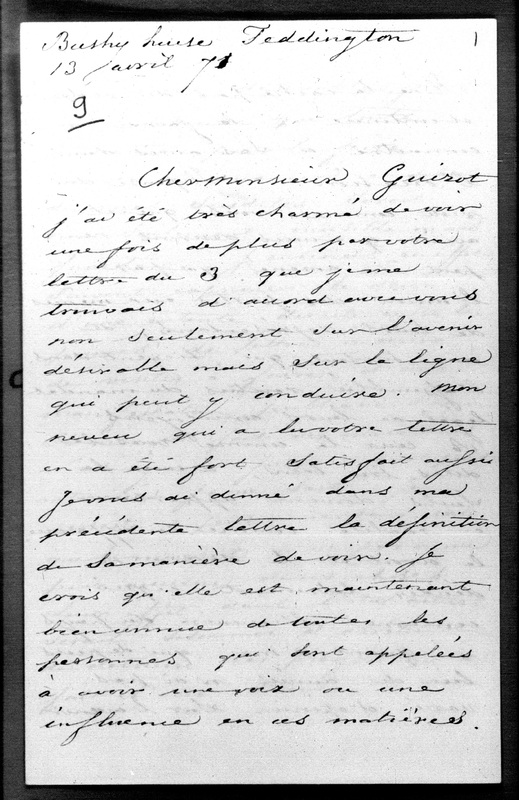 Bushy house Teddington
1
13 avril 71
9
Cher Monsieur Guizot
j'ai été très charmé de voir
une fois de plus par votre
lettre du 3. que je me
trouvais d'accord avec vous
non seulement sur l'avenir
désirable mais sur la ligne
qui peut y conduire. Mon
neveu qui a lu votre lettre
en a été fort satisfait aussi
Je vous ai donné dans ma
précédente lettre la définition
de sa manière de voir. Je
crois qu'elle est maintenant
bien connue de toutes les
personnes qui sont appelées
à avoir une voix ou une
influence en ces matières.